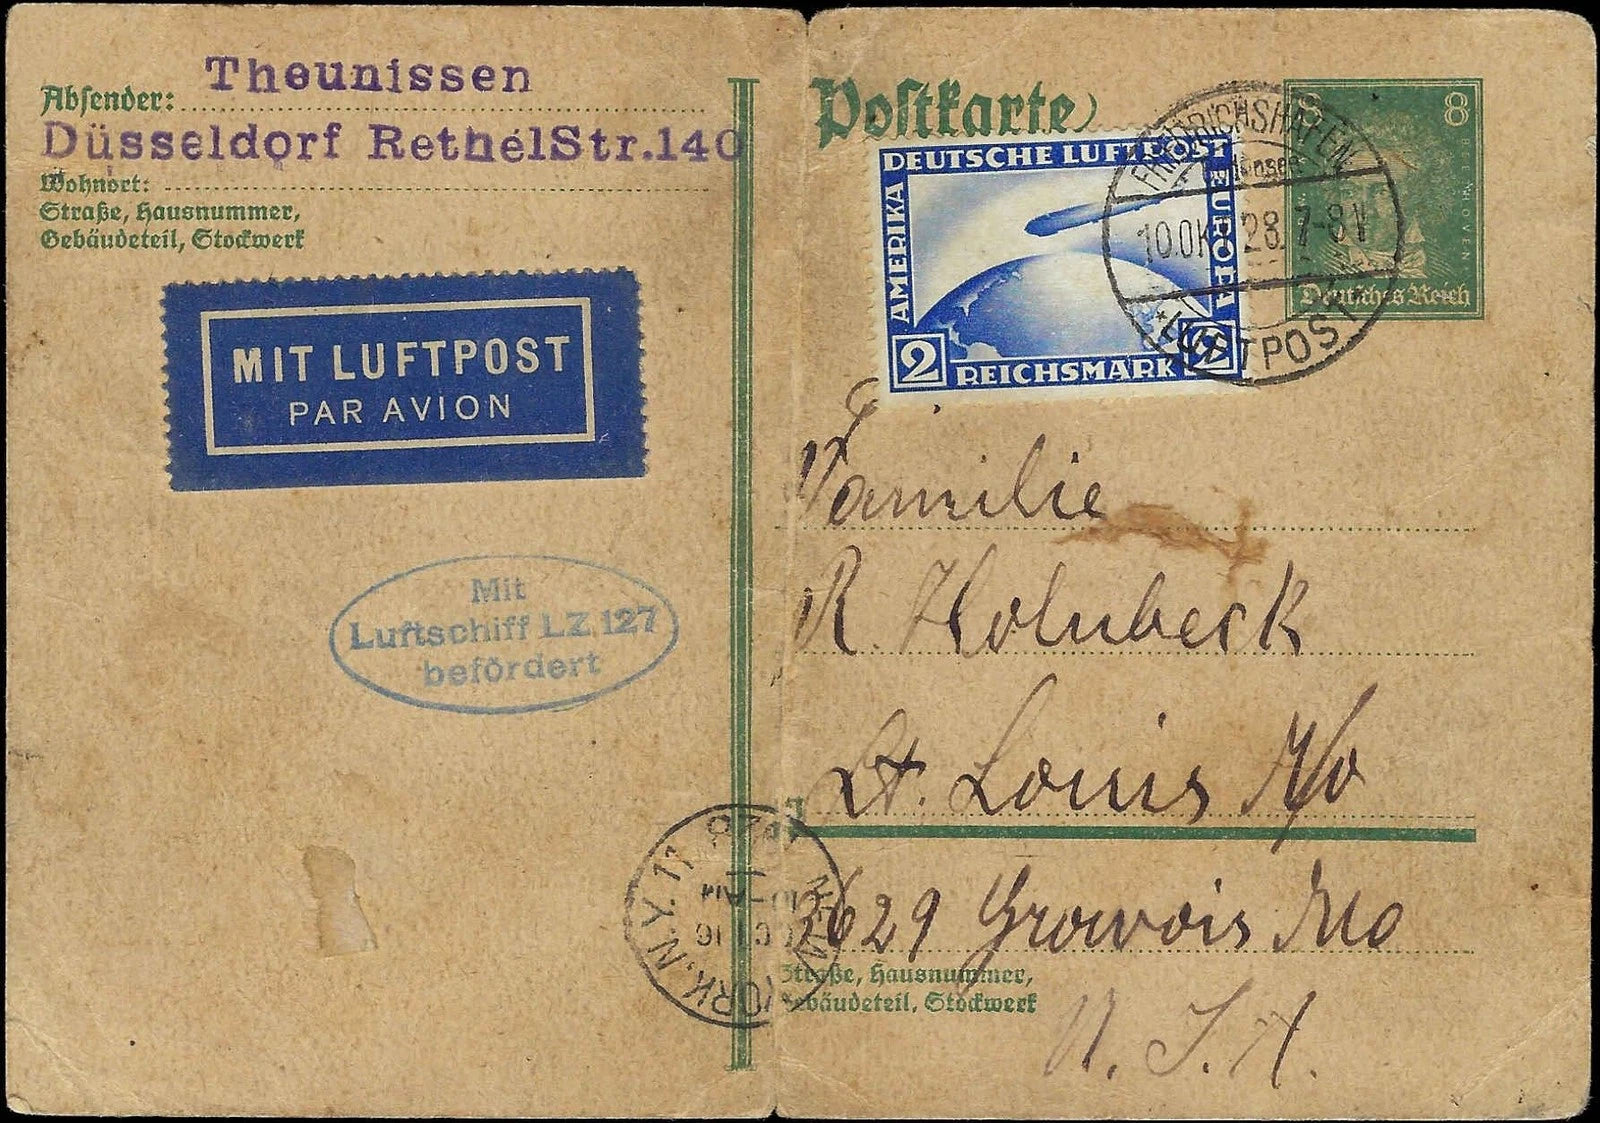 Theunissen
Absender:
Düsseldorf RethelStr.140
Wohnort:
Straße, Hausnummer,
Gebäudeteil, Stockwerk
MIT LUFTPOST
PAR AVION
Mit
Luftschiff LZ 127
befördert
Postkarte
DEUTSCHE LUFTPOST
AMERIKA
EUROPA
2 REICHSMARK 2
FRIEDRICHSHAFEN
10.OKT 28.7-8V
*LUFTPOST
8 8
BEETHOVEN
Deutsches Reich
Familie
R. Holnbeck
St. Louis Mo
3629 Gravois Mo
Straße, Hausnummer,
Gebäudeteil, Stockwerk
U. S. A.
NEW YORK, N.Y. 11
OCT 16
10-AM
1928